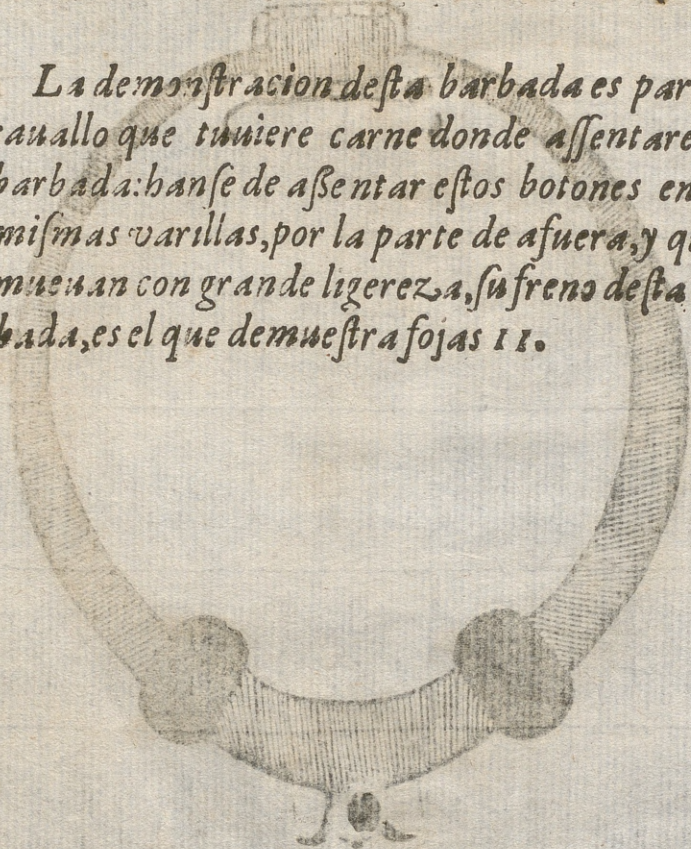 La demonſtracion deſta barbada es par
cauallo que tuuiere carne donde aſſentare
barbada:hanſe de aſsentar eſtos botones en
miſmas varillas,por la parte de afuera,y qu
mueuan con grande ligereza,ſu freno deſta
bada,es el que demueſtra fojas 11.